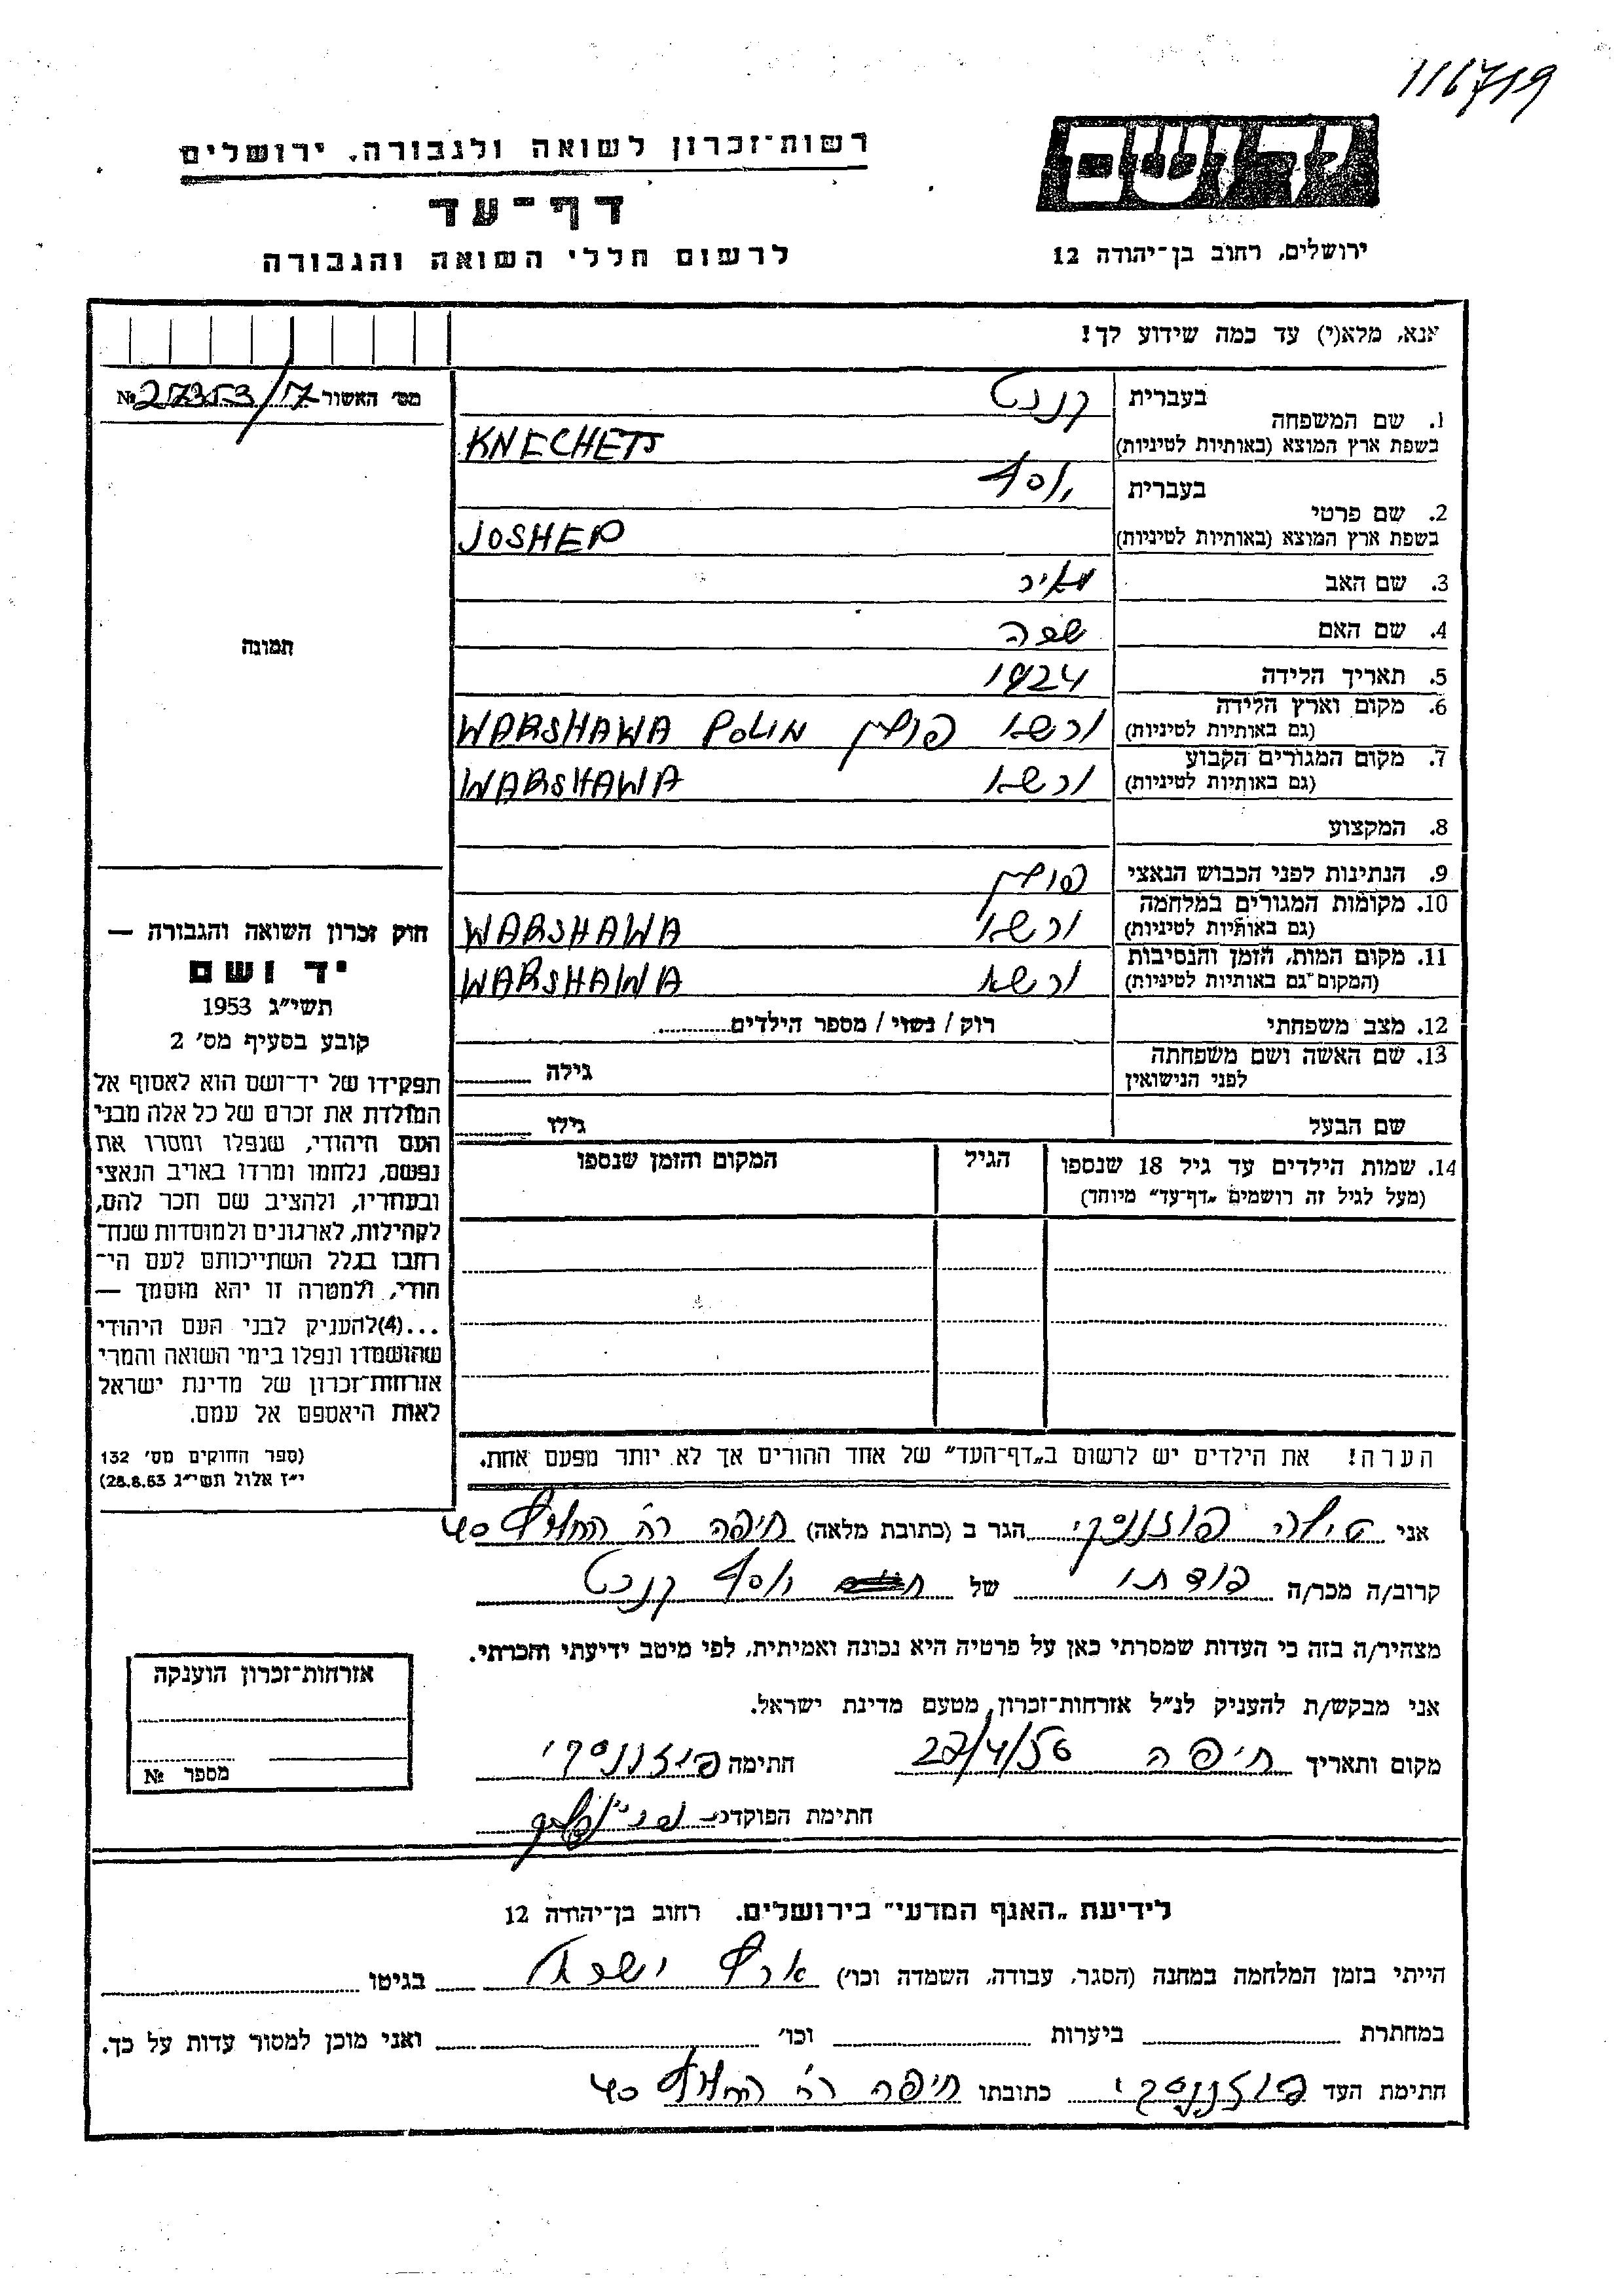 116719
יד ושם
ירושלים, רחוב בן־יהודה 12
רשות־זכרון לשואה ולגבורה, ירושלים
דף־עד
לרשום חללי השואה והגבורה
אנא, מלא(י) עד כמה שידוע לך!
מס׳ האשור 27353/17 №
1. שם המשפחה בעברית קנכט
בשפת ארץ המוצא (באותיות לטיניות) KNECHETS
2. שם פרטי בעברית יוסף
בשפת ארץ המוצא (באותיות לטיניות) JOSHEP
3. שם האב מאיר
4. שם האם שפרה
5. תאריך הלידה 1924
6. מקום וארץ הלידה
(גם באותיות לטיניות) ורשא פולין WARSHAWA POLIN
7. מקום המגורים הקבוע
(גם באותיות לטיניות) ורשא WARSHAWA
8. המקצוע
9. הנתינות לפני הכבוש הנאצי פולין
10. מקומות המגורים במלחמה
(גם באותיות לטיניות) ורשא WARSHAWA
11. מקום המות, הזמן והנסיבות
(המקום גם באותיות לטיניות) ורשא WARSHAWA
12. מצב משפחתי רוק / נשוי / מספר הילדים
13. שם האשה ושם משפחתה
לפני הנישואין גילה
שם הבעל גילו
14. שמות הילדים עד גיל 18 שנספו הגיל המקום והזמן שנספו
(מעל לגיל זה רושמים „דף־עד״ מיוחד)
הערה! את הילדים יש לרשום ב„דף־העד״ של אחד ההורים אך לא יותר מפעם אחת.
תמונה
חוק זכרון השואה והגבורה —
יד ושם
תשי״ג 1953
קובע בסעיף מס׳ 2
תפקידו של יד־ושם הוא לאסוף אל
המולדת את זכרם של כל אלה מבני
העם היהודי, שנפלו ומסרו את
נפשם, נלחמו ומרדו באויב הנאצי
ובעוזריו, ולהציב שם וזכר להם,
לקהילות, לארגונים ולמוסדות שנח־
רבו בגלל השתייכותם לעם הי־
הודי, ולמטרה זו יהא מוסמך —
...(4) להעניק לבני העם היהודי
שהושמדו ונפלו בימי השואה והמרי
אזרחות־זכרון של מדינת ישראל
לאות היאספם אל עמם.
(ספר החוקים מס׳ 132
י״ז אלול תשי״ג 28.8.53)
אני טולה פוזננסקי הגר ב (כתובת מלאה) חיפה רח׳ החלוץ 40
קרוב/ה מכר/ה דודתו של יוסף קנכט
מצהיר/ה בזה כי העדות שמסרתי כאן על פרטיה היא נכונה ואמיתית, לפי מיטב ידיעתי והכרתי.
אני מבקש/ת להעניק לנ״ל אזרחות־זכרון מטעם מדינת ישראל.
מקום ותאריך חיפה 22/4/56 חתימה פוזננסקי
חתימת הפוקד
אזרחות־זכרון הוענקה
מספר №
לידיעת „האגף המדעי״ בירושלים. רחוב בן־יהודה 12
הייתי בזמן המלחמה במחנה (הסגר, עבודה, השמדה וכו׳) ארץ ישראל בגיטו
במחתרת ביערות וכו׳ ואני מוכן למסור עדות על כך.
חתימת העד פוזננסקי כתובתו חיפה רח׳ החלוץ 40